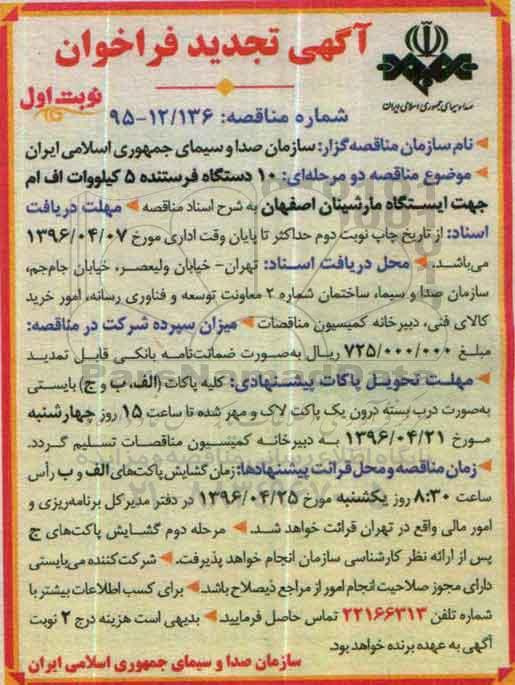 آگهی تجدید فراخوان
صدا و سیمای جمهوری اسلامی ایران
نوبت اول
شماره مناقصه: ۱۲/۱۳۶-۹۵
نام سازمان مناقصه گزار: سازمان صدا و سیمای جمهوری اسلامی ایران
موضوع مناقصه دو مرحله‌ای: ۱۰ دستگاه فرستنده ۵ کیلووات اف ام
جهت ایستگاه مارشینان اصفهان به شرح اسناد مناقصه مهلت دریافت
اسناد: از تاریخ چاپ نوبت دوم حداکثر تا پایان وقت اداری مورخ ۱۳۹۶/۰۴/۰۷
می‌باشد. محل دریافت اسناد: تهران- خیابان ولیعصر، خیابان جام‌جم،
سازمان صدا و سیما، ساختمان شماره ۲ معاونت توسعه و فناوری رسانه، امور خرید
کالای فنی، دبیرخانه کمیسیون مناقصات میزان سپرده شرکت در مناقصه:
مبلغ ۷۲۵/۰۰۰/۰۰۰ ریال به‌صورت ضمانت‌نامه بانکی قابل تمدید
مهلت تحویل پاکات پیشنهادی: کلیه پاکات (الف، ب و ج) بایستی
به‌صورت درب بسته درون یک پاکت لاک و مهر شده تا ساعت ۱۵ روز چهارشنبه
مورخ ۱۳۹۶/۰۴/۲۱ به دبیرخانه کمیسیون مناقصات تسلیم گردد.
زمان مناقصه و محل قرائت پیشنهادها: زمان گشایش پاکت‌های الف و ب رأس
ساعت ۸:۳۰ روز یکشنبه مورخ ۱۳۹۶/۰۴/۲۵ در دفتر مدیرکل برنامه‌ریزی و
امور مالی واقع در تهران قرائت خواهد شد. مرحله دوم گشایش پاکت‌های ج
پس از ارائه نظر کارشناسی سازمان انجام خواهد پذیرفت. شرکت‌کننده می‌بایستی
دارای مجوز صلاحیت انجام امور از مراجع ذیصلاح باشد. برای کسب اطلاعات بیشتر با
شماره تلفن ۲۲۱۶۶۳۱۳ تماس حاصل فرمایید. بدیهی است هزینه درج ۲ نوبت
آگهی به عهده برنده خواهد بود.
سازمان صدا و سیمای جمهوری اسلامی ایران
ParsNamadData